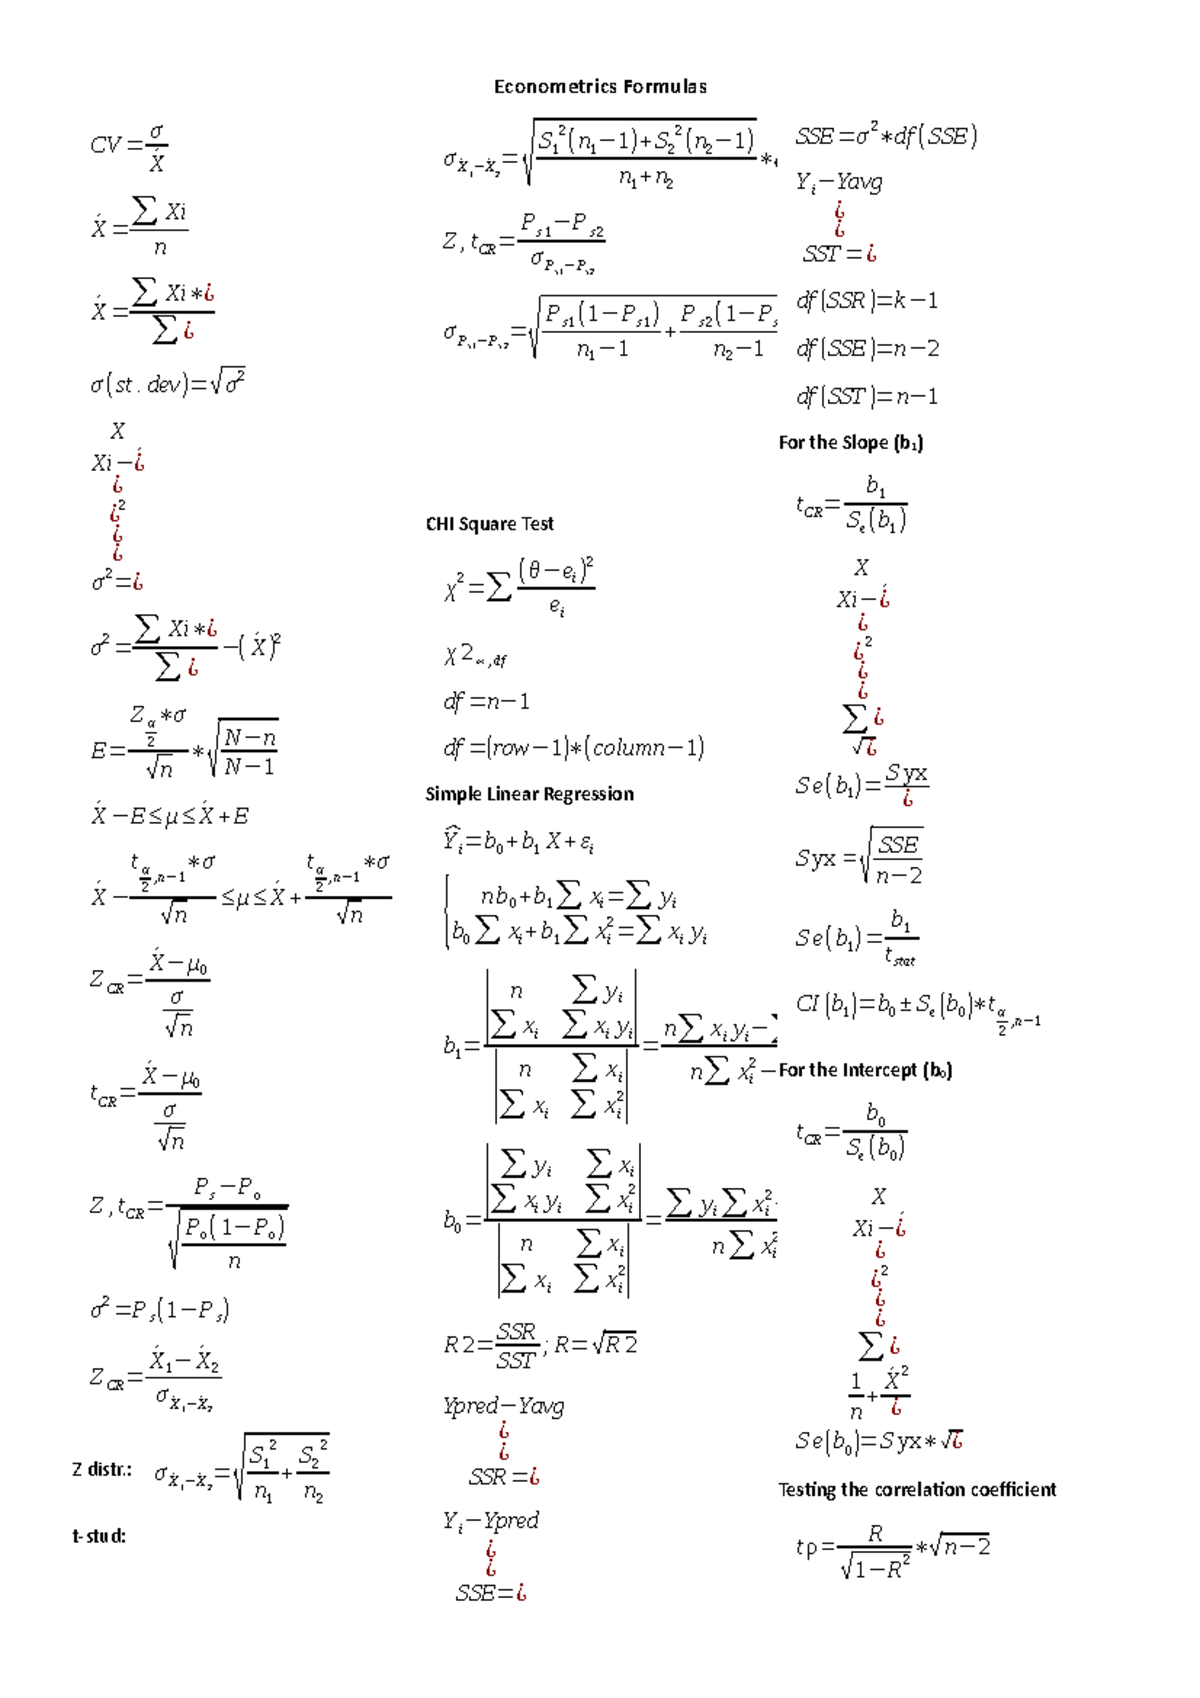 Econometrics Formulas
CV = σ / X́
X́ = ∑ Xi / n
X́ = ∑ Xi * ¿ / ∑ ¿
σ (st . dev) = √σ²
X
Xi − ¿́
¿
¿²
¿
¿
σ² = ¿
σ² = ∑ Xi * ¿ / ∑ ¿ − ( X́ )²
E = Z_{α/2} * σ / √n * √((N − n) / (N − 1))
X́ − E ≤ μ ≤ X́ + E
X́ − t_{α/2 , n−1} * σ / √n ≤ μ ≤ X́ + t_{α/2 , n−1} * σ / √n
Z_CR = (X́ − μ₀) / (σ / √n)
t_CR = (X́ − μ₀) / (σ / √n)
Z , t_CR = (P_s − P_o) / √(P_o ( 1 − P_o) / n)
σ² = P_s (1 − P_s)
Z_CR = (X́₁ − X́₂) / σ_{X́₁−X́₂}
Z distr.: σ_{X́₁−X́₂} = √(S₁² / n₁ + S₂² / n₂)
t-stud:
σ_{X́₁−X́₂} = √((S₁² (n₁ − 1) + S₂² (n₂ − 1)) / (n₁ + n₂)) *
Z , t_CR = (P_s1 − P_s2) / σ_{P_s1−P_s2}
σ_{P_s1−P_s2} = √(P_s1 (1 − P_s1) / (n₁ − 1) + P_s2 (1 − P_s / (n₂ − 1)
CHI Square Test
χ² = ∑ (θ − e_i)² / e_i
χ 2_{∝ , df}
df = n − 1
df = (row − 1) * (column − 1)
Simple Linear Regression
Ŷ_i = b₀ + b₁ X + ε_i
{ n b₀ + b₁ ∑ x_i = ∑ y_i
b₀ ∑ x_i + b₁ ∑ x_i² = ∑ x_i y_i
b₁ = |n ∑ y_i ; ∑ x_i ∑ x_i y_i| / |n ∑ x_i ; ∑ x_i ∑ x_i²| = n ∑ x_i y_i − ∑ / n ∑ x_i² −
b₀ = |∑ y_i ∑ x_i ; ∑ x_i y_i ∑ x_i²| / |n ∑ x_i ; ∑ x_i ∑ x_i²| = ∑ y_i ∑ x_i² / n ∑ x_i²
R 2 = SSR / SST ; R = √R 2
Ypred − Yavg
¿
¿
SSR = ¿
Y_i − Ypred
¿
¿
SSE = ¿
SSE = σ² * df (SSE)
Y_i − Yavg
¿
¿
SST = ¿
df (SSR) = k − 1
df (SSE) = n − 2
df (SST) = n − 1
For the Slope (b₁)
t_CR = b₁ / S_e (b₁)
X
Xi − ¿́
¿
¿²
¿
¿
∑ ¿
√¿
Se (b₁) = Syx / ¿
Syx = √(SSE / (n − 2))
Se (b₁) = b₁ / t_stat
CI (b₁) = b₀ ± S_e (b₀) * t_{α/2 , n−1}
For the Intercept (b₀)
t_CR = b₀ / S_e (b₀)
X
Xi − ¿́
¿
¿²
¿
¿
∑ ¿
1 / n + X́² / ¿
Se (b₀) = Syx * √¿
Testing the correlation coefficient
tρ = R / √(1 − R²) * √(n − 2)